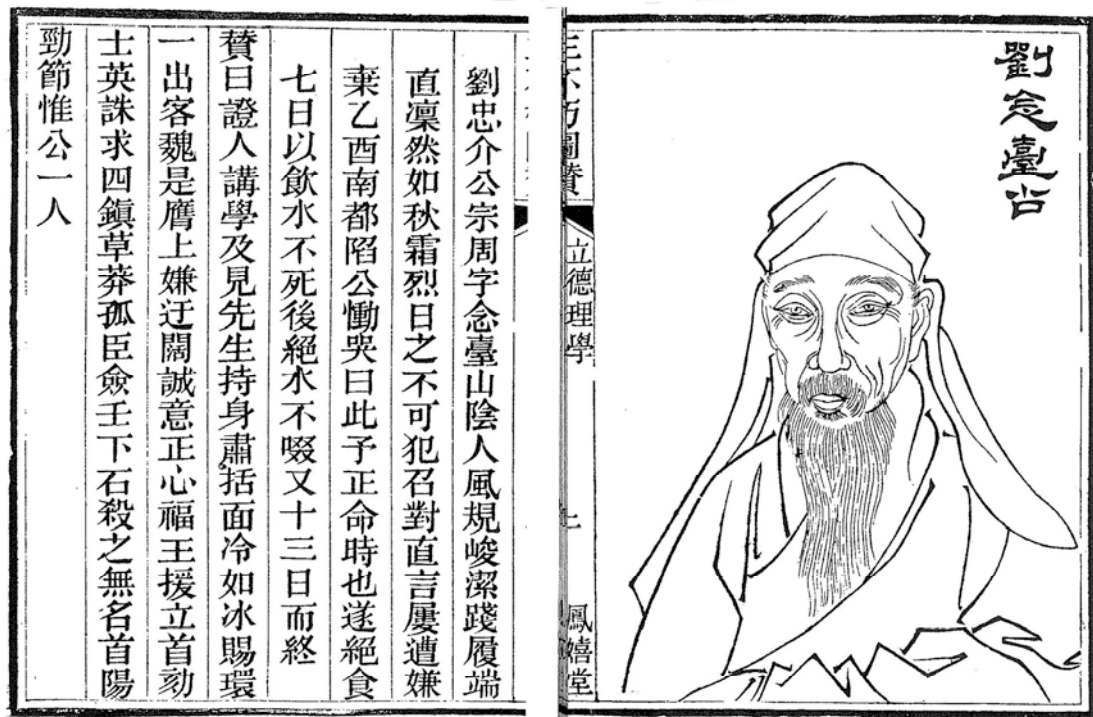 劉念臺公
三不朽圖贊
立德理學
二
鳳嬉堂
劉忠介公宗周字念臺山陰人風規峻潔踐履端
直凜然如秋霜烈日之不可犯召對直言屢遭嫌
棄乙酉南都陷公慟哭曰此予正命時也遂絕食
七日以飲水不死後絕水不啜又十三日而終
贊曰證人講學及見先生持身肅括面冷如冰賜環
一出客魏是膺上嫌迂闊誠意正心福王援立首劾
士英誅求四鎮草莽孤臣僉壬下石殺之無名首陽
勁節惟公一人